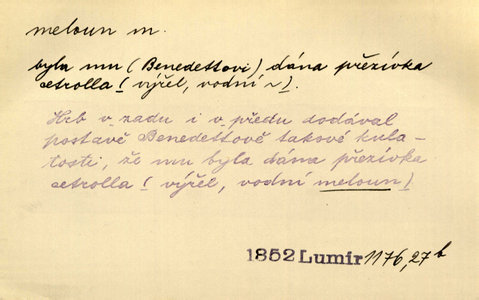 meloun m.
byla mu (Benedettovi) dána přezívka
cetrolla ( výřěl, vodní ~ ).
Hrb v zadu i v předu dodával
postavě Benedettově takové kula-
tosti, že mu byla dána přezívka
cetrolla ( výřěl, vodní meloun)
1852 Lumír 1176,27 b